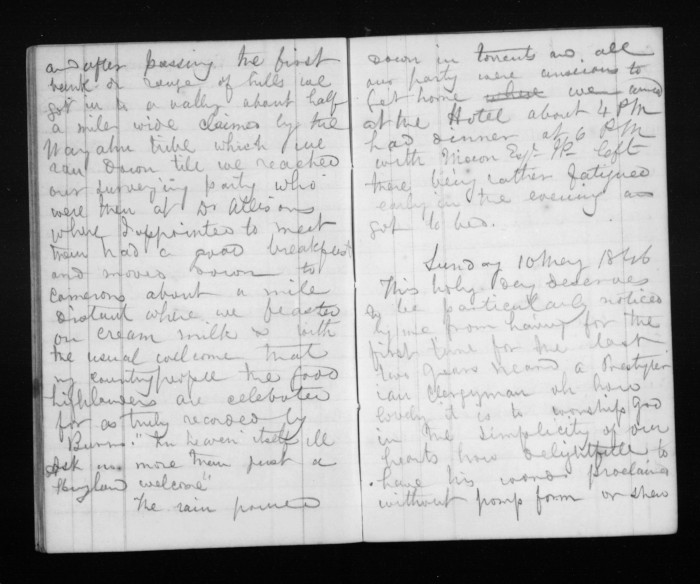 and after passing the first
bank or range of hills we
got in to a vally about half
a mile wide claimed by the
tribe which we
ran down till we reached
our surveying party who
were then at Dr Allisons
where I appointed to meet
them had a good breakfast
and moved down to
Camerons about a mile
distant where we feasted
on cream milk & with
the usual welcome that
my country people the good
highlanders are celebrated
for as truly recorded by
Burns. "In heaven itself Ill
ask no more than just a
Highland welcome"
The rain poured
down in torrents and all
our party were anxious to
get home where we arrived
at the Hotel about 4 PM
had dinner at 6 PM
with Macon Esqr JP left
there being rather fatigued
early in the evening and
got to bed.
Sunday 10 May 1846
This holy day deserves
to be particularly noticed
by me from having for the
first time for the last
years heard a Presbyter
ian Clergyman oh how
lovely it is to worship God
in the simplicity of our
hearts how delightfull to
have his word proclaimed
without pomp form or shew